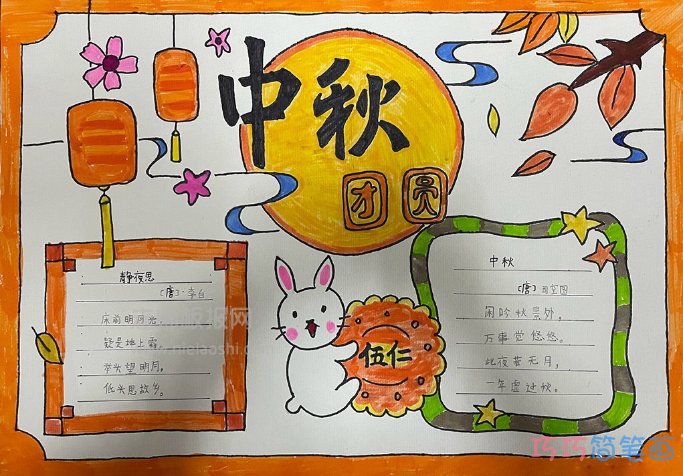 中秋
团圆
静夜思
〔唐〕·李白
床前明月光，
疑是地上霜。
举头望明月，
低头思故乡。
伍仁
中秋
〔唐〕司空图
闲吟秋景外，
万事觉悠悠。
此夜若无月，
一年虚过秋。
巧巧简笔画